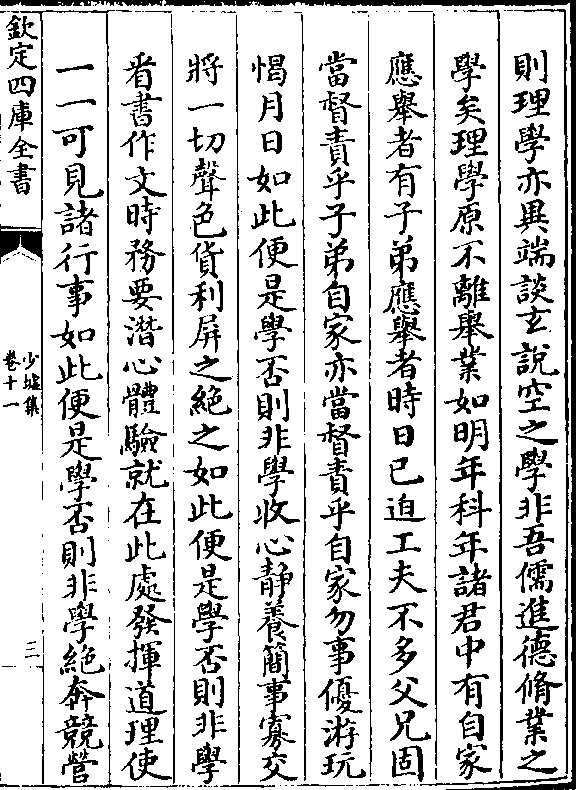 則理學亦異端談玄說空之學非吾儒進德脩業之
學矣理學原不離舉業如明年科年諸君中有自家
應舉者有子弟應舉者時日已迫工夫不多父兄固
當督責乎子弟自家亦當督責乎自家勿事優游玩
愒月日如此便是學否則非學收心靜養簡事寡交
將一切聲色貨利屏之絕之如此便是學否則非學
看書作文時務要潛心體驗就在此處發揮道理使
一一可見諸行事如此便是學否則非學絕奔競營
欽定四庫全書
少墟集
卷十一
三